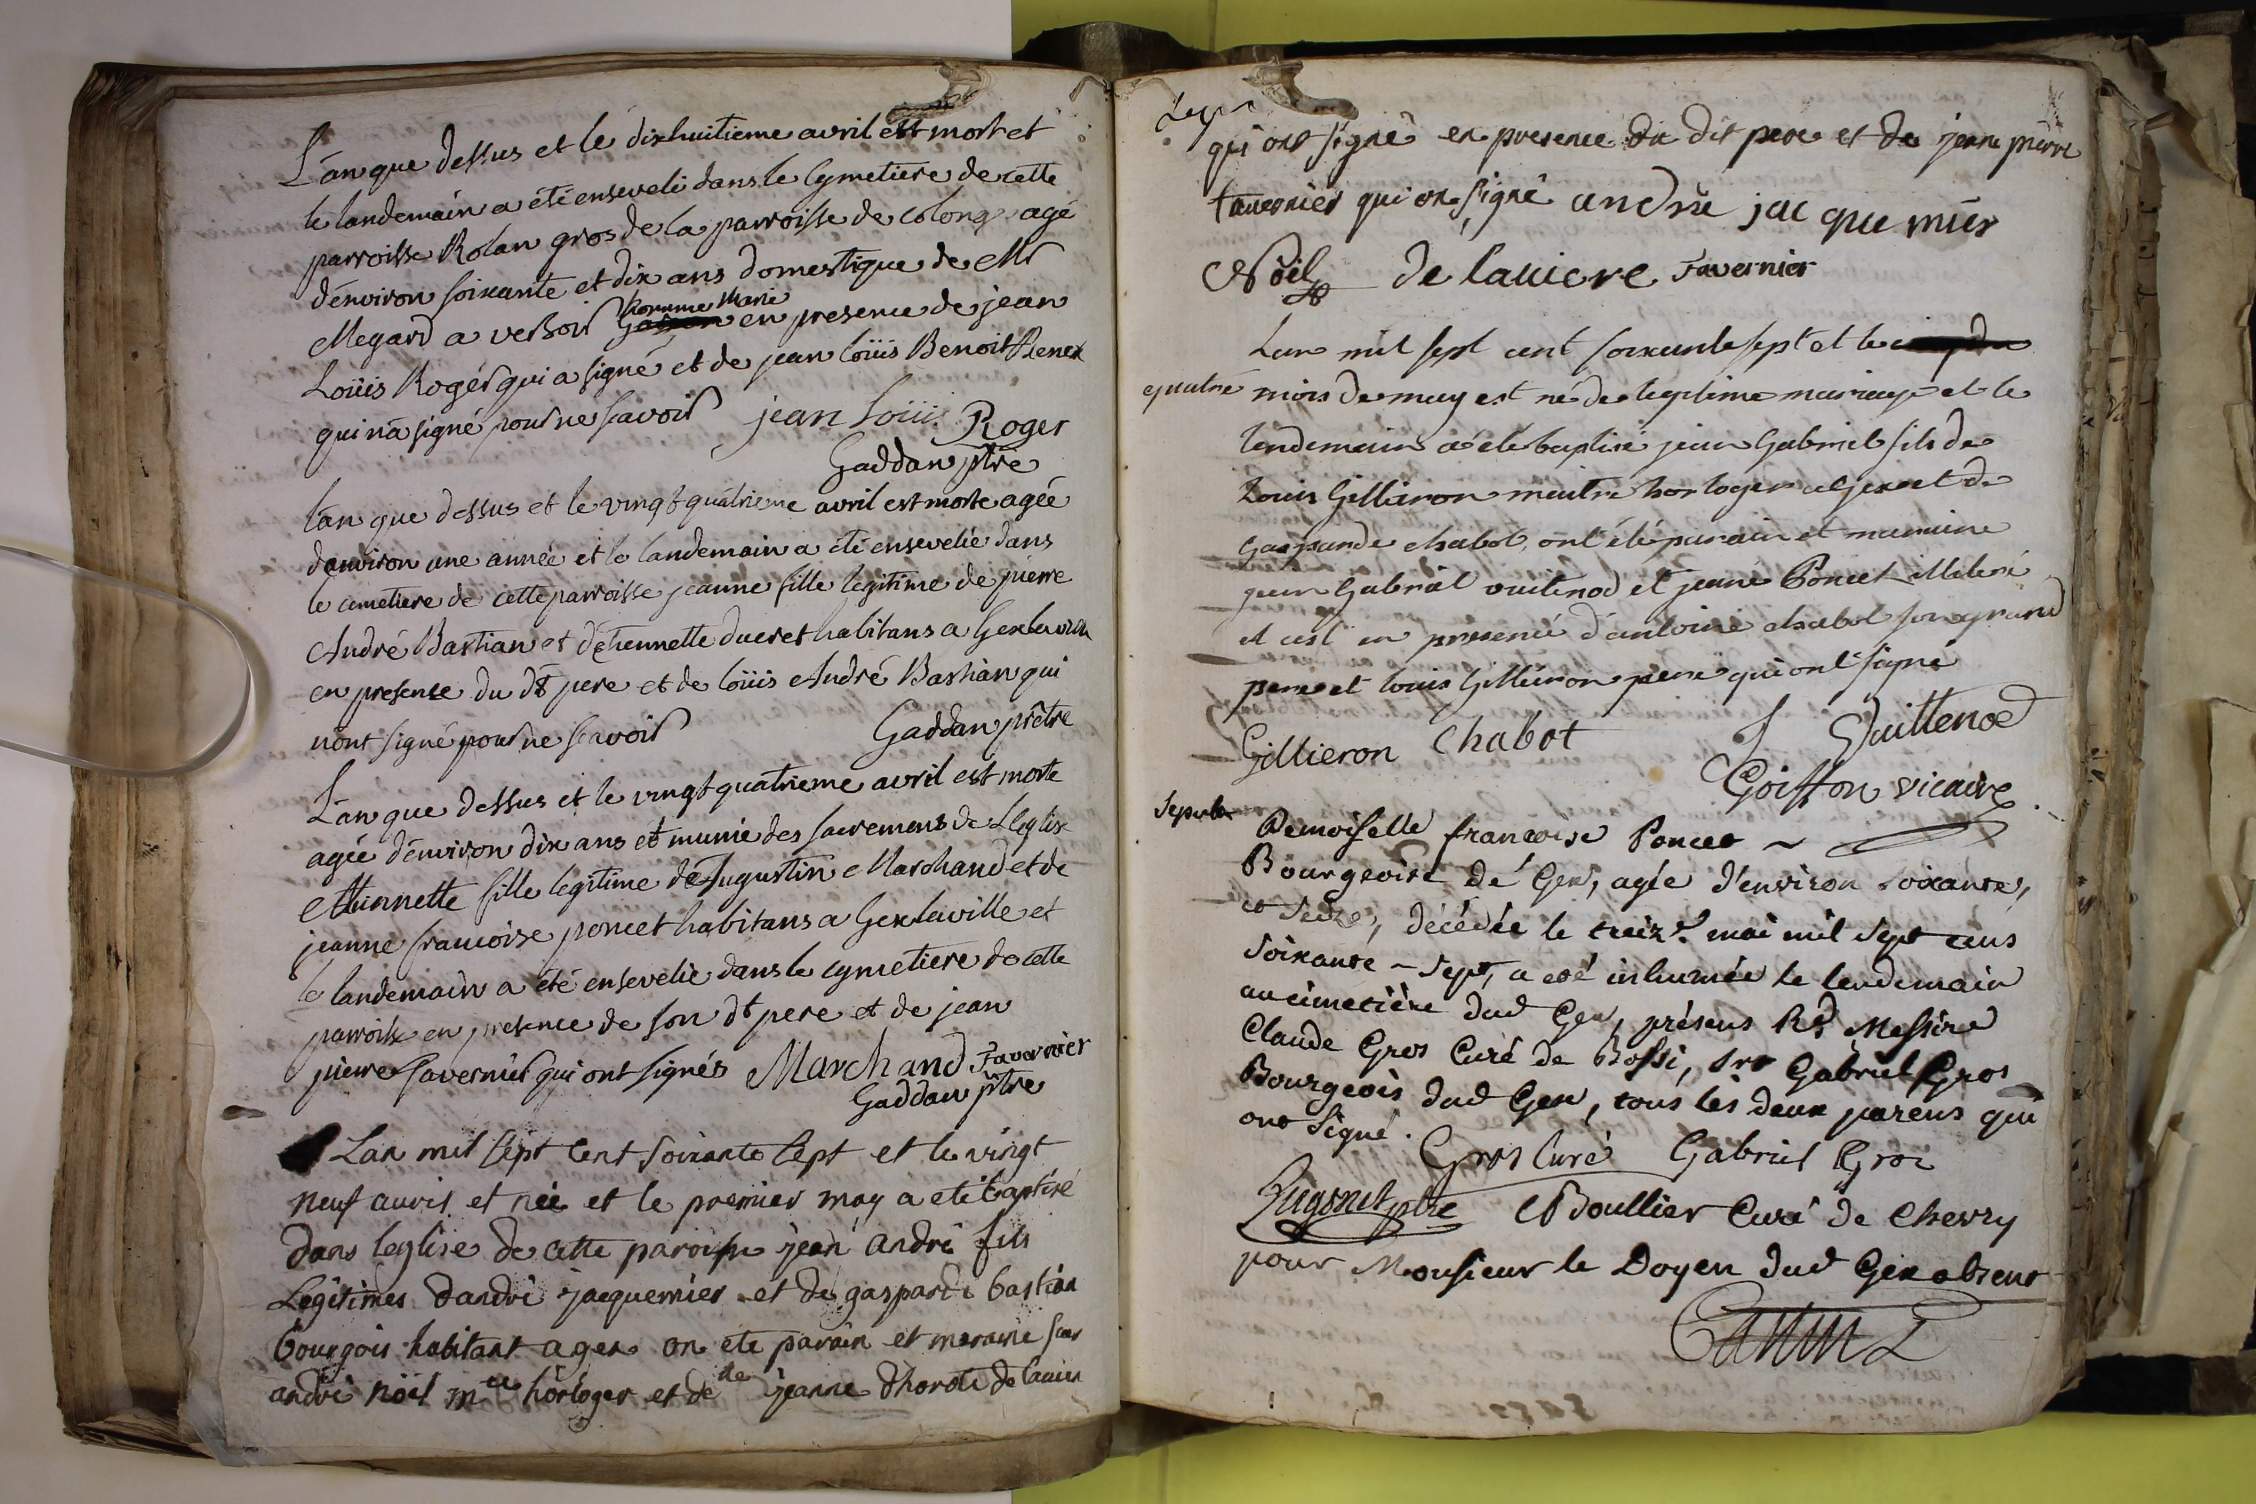 L'an que dessus et le dixhuitieme avril est mort et
le landemain a été enseveli dans le Cymetiere de cette
parroisse Rolan gros de la parroisse de colonge agé
d'environ soixante et dix ans domestique de Mr
Megard a versoir homme Marié en presence de jean
Loüis Roger qui a signé et de jean loüis Benoit
qui n'a signé pour ne scavoir jean Loüis Roger
Gaddan ptre
l'an que dessus et le vingt quatrieme avril est morte agée
d'environ une année et le landemain a été ensevelie dans
le cimetiere de cette parroisse jeanne fille legitime de pierre
André Bastian et d'Etiennette ducret habitans a Gex la ville
en presence du dt pere et de loüis André Bastian qui
n'ont signé pour ne scavoir Gaddan prêtre
L'an que dessus et le vingt quatrieme avril est morte
agée d'environ dix ans et munie des sacremens de L'eglise
Etiennette fille legitime de Augustin Marchand et de
jeanne francoise poncet habitans a Gex la ville et
le landemain a été ensevelie dans le cymetiere de cette
parroisse en presence de son dt pere et de jean
pierre favernier qui ont signés Marchand Favernier
Gaddan ptre
Lan mil sept cent soixante sept et le vingt
neuf avril et née et le premier may a eté baptisé
dans leglise de cette paroisse jean andré fils
Légitimes dandré jacquemier et de gasparde bastian
bourgois habitant a gex on ete parain et maraine sieur
andré nöel me hôrloger et de de jeanne dhoroté de lavier
qui ont signé en presence du dit pere et de jean pierre
favernier qui on signé andrü jac que mier
Nöel de laviere Favernier
Lan mil sept cent soixante sept et le
quatre mois de may est né de legitime mariage et le
lendemain a été baptisé jean Gabriel fils de
Louis Gillieron maitre horloger a Gex et de
Gasparde chabot, ont été parain et maraine
jean Gabriel vuitenod et jeane Poncet
et cest en presence d'antoine chabot son grand
pere et louis Gillieron pere qui ont signé
Gillieron Chabot J Vuittenod
Goiffon vicaire
Sepulture Demoiselle francoise Poncet ~
Bourgeoise de Gex, agée d'environ soixante,
et seize, décédée le treize. mai mil sept cens
soixante - sept, a eté inhumée le lendemain
au cimetière dud Gex, présens Rd. Messire
Claude Gros Curé de Bossi, sr Gabriel Gros
Bourgeois dud Gex, tous les deux parens qui
ont signé.
Gros Curé Gabriel Gros
Zugonet ptre Boullier Curé de Chevry
pour Monsieur le Doyen dud Gex absent